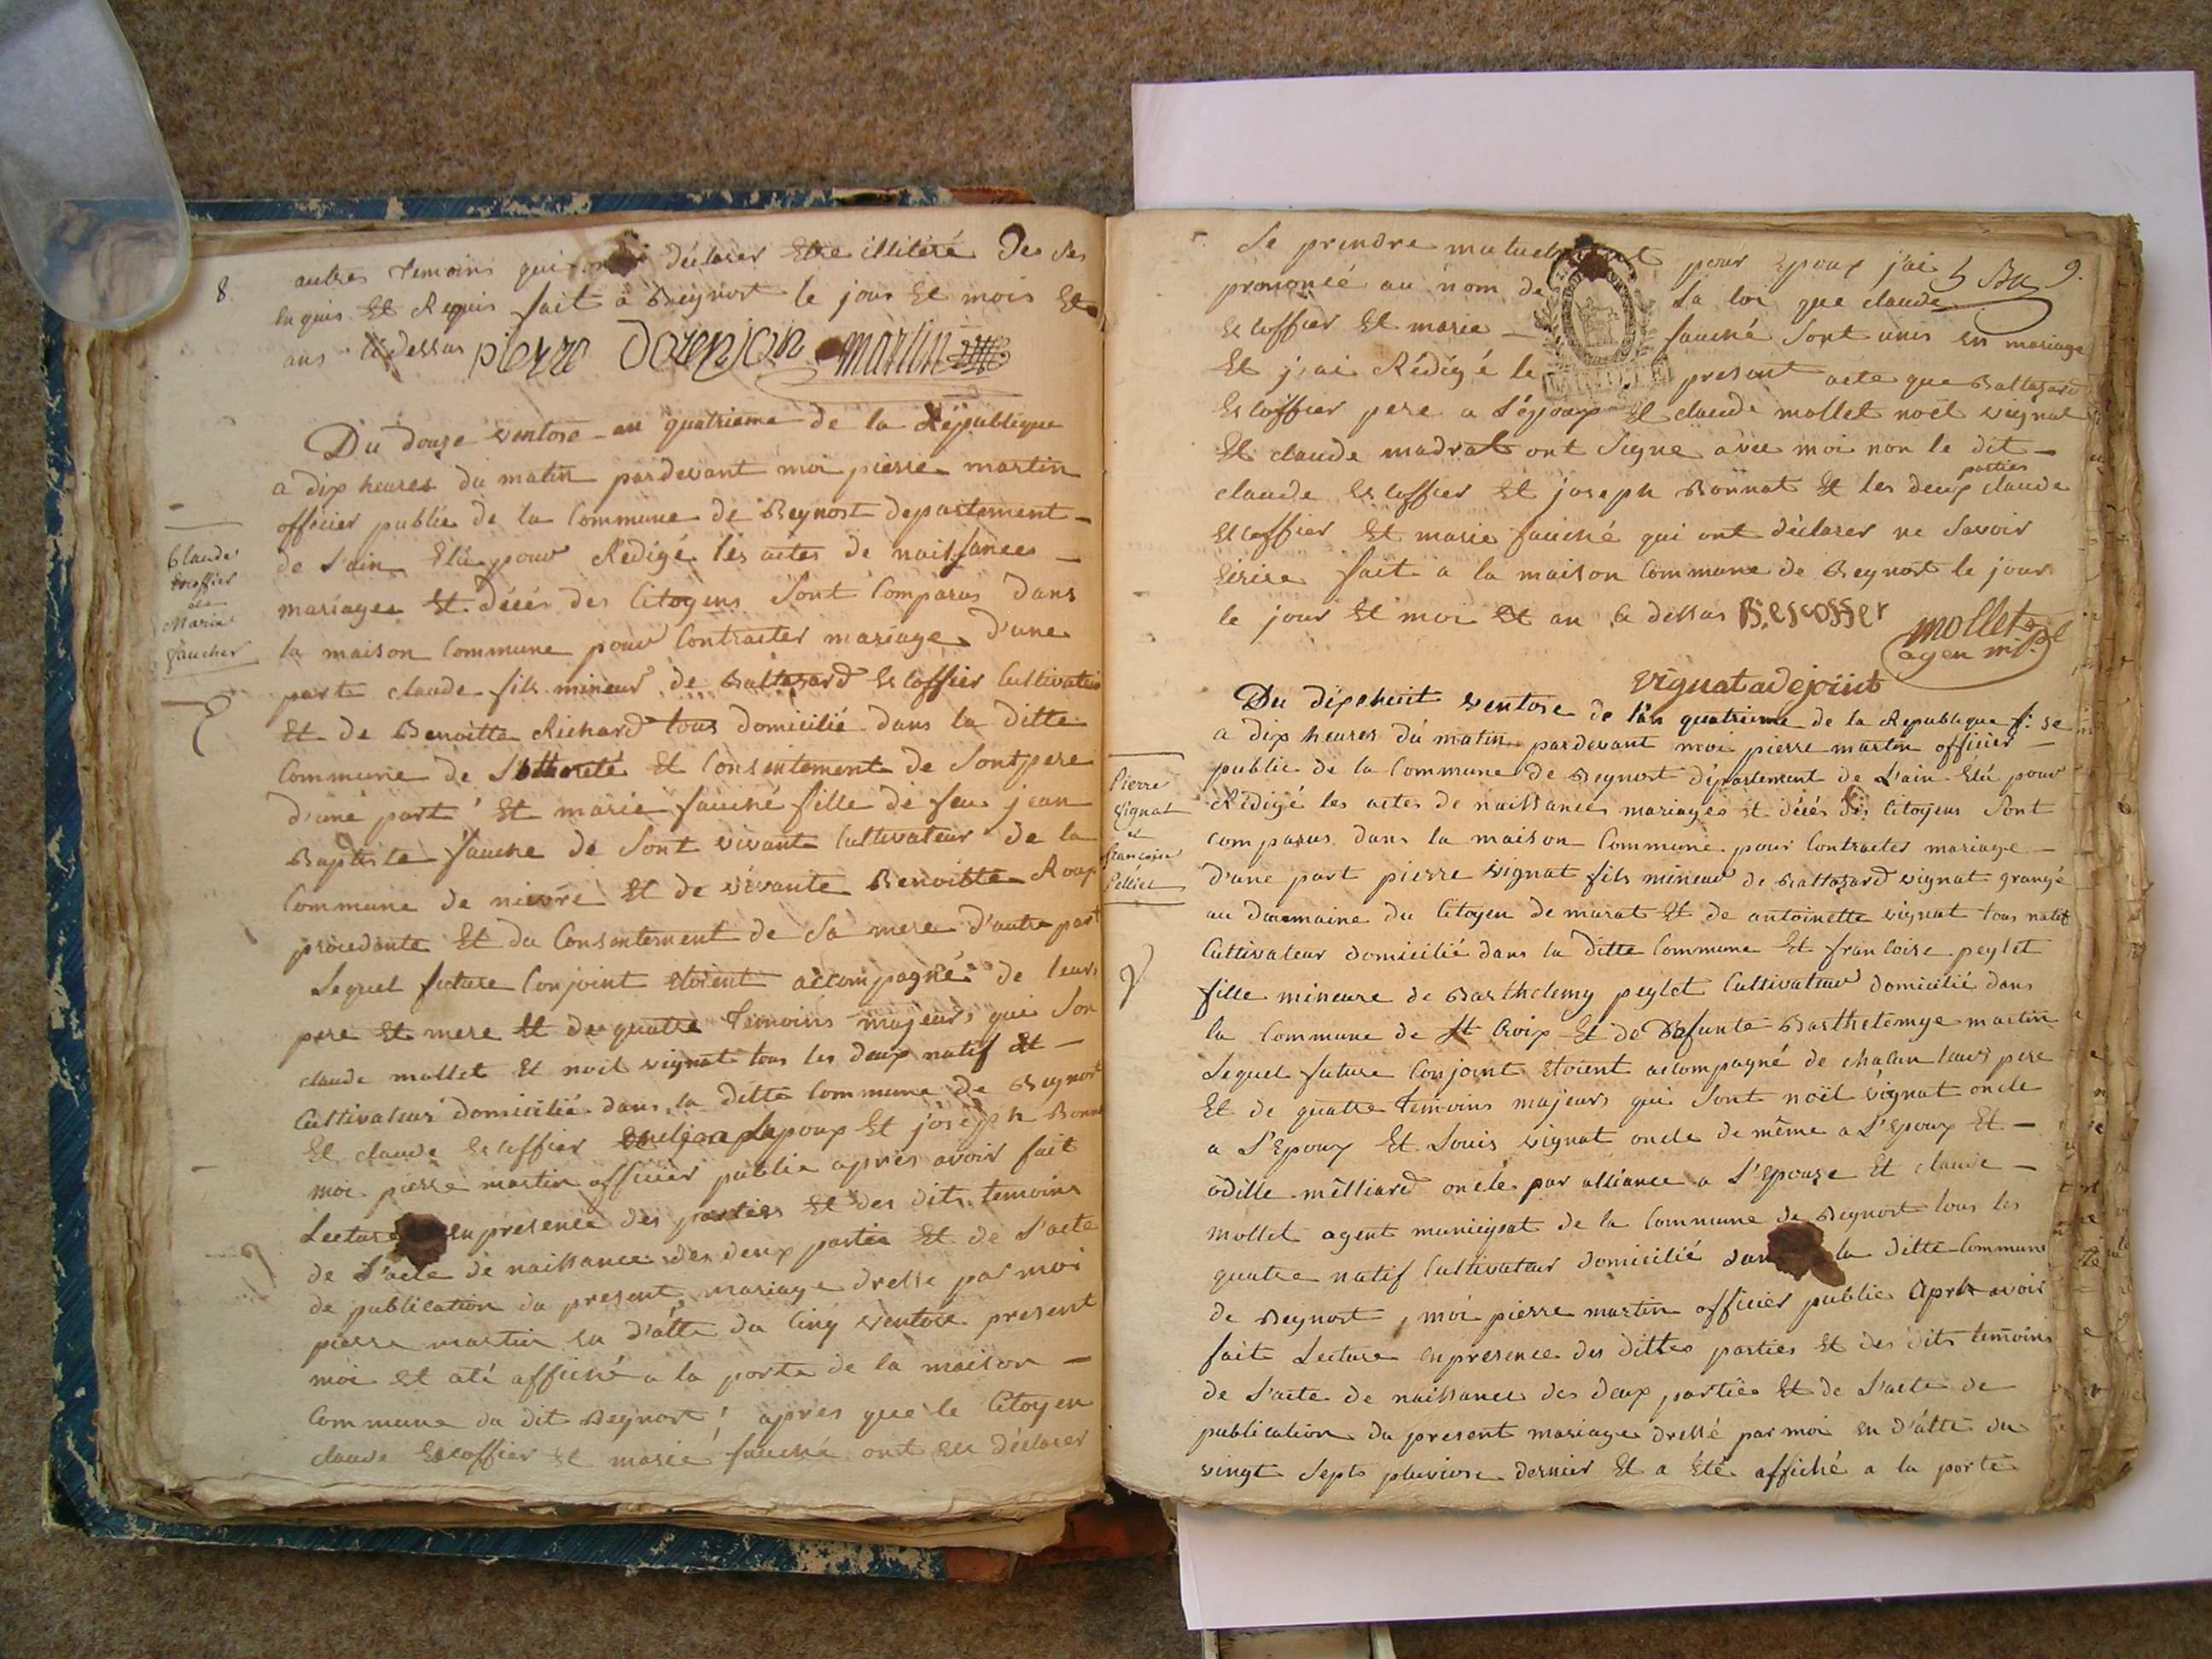 8.
autres temoins qui ont déclarer Etre illitéré de ses
enquis Et Requis fait a Beynost le jour Et mois Et
ans ci dessus pierre dorenjon martin
Claude
Escoffier
et
Marie
faucher
Du douze ventose an quatrieme de la République
a dix heures du matin pardevant moi pierre martin
officier public de la Commune de Beynost departement
de L'ain Elu pour Rédigé les actes de naissances
mariages Et décés des Citoyens Sont Comparus dans
la maison Commune pour Contracter mariage d'une
parte claude fils mineur de Baltasard Escoffier Cultivateur
Et de Benoitte Richard tous domicilié dans la ditte
Commune de L'othorité Et Consentement de Sont pere
d'une part Et marie fauché fille de feu jean
Baptiste fauche de Sont vivant Cultivateur de la
Commune de nievre Et de vivante Benoitte Roux
procedante Et du Consentement de Sa mere d'autre part
Lequel future Conjoint Etoient accompagné de leurs
pere Et mere Et de quatre temoins majeurs qui Son
claude mollet Et noël vignat tous les deux natif Et
Cultivateur domicilié dans la ditte Commune de Beynost
Et claude Escoffier Epoux Et joseph Bonnat
moi pierre martin officier public apres avoir fait
Lecture en presence des parties Et des dits temoins
de L'acte de naissance des deux partie Et de L'acte
de publication du present mariage dressé par moi
pierre martin en d'atte du Cinq ventose present
moi et até affiché a la porte de la maison
Commune du dit Beynost apres que le Citoyen
claude Escoffier Et marie fauché ont eu déclarer
9.
Se prendre mutuellement pour Epoux j'ai
prononcé au nom de La loi que claude
Escoffier Et marie fauché Sont unis en mariage
Et j'ai Rédigé le present acte que Baltasard
Escoffier pere a L'époux Et claude mollet noël vignat
Et claude madrat ont Signe avec moi non le dit
claude Escoffier Et joseph Bonnat Et les deux parties claude
Escoffier Et marie fauché qui ont déclarer ne Savoir
Ecrire fait a la maison Commune de Beynost le jour
le jour Et moi Et an Ci dessus B. escosser mollet
agen mpl
vignat adejoint
Pierre
Vignat
et
francoise
Pelliet
Du dixehuit ventose de l'an quatrieme de la Republique f: se
a dix heures du matin pardevant moi pierre martin officier
public de la Commune de Beynost département de L'ain Elu pour
Rédigé les actes de naissances mariages Et décés des Citoyens Sont
comparus dans la maison Commune pour Contracter mariage
d'une part pierre vignat fils mineur de Baltasard vignat grangé
au doemaine du Citoyen de murat Et de antoinette vignat tous natif
Cultivateur domicilié dans la ditte Commune Et francoise peylet
fille mineure de Barthelemy peylet Cultivateur domicilié dans
la Commune de St Croix Et de defunte Barthelemye martin
Lequel future Conjoint Etoient accompagné de chacun leurs pere
Et de quatre temoins majeurs qui Sont noël vignat oncle
a L'Epoux Et Louis vignat oncle de même a L'Epoux Et
odille mélliard oncle par alliance a L'Epouze Et claude
mollet agent municipat de la Commune de Beynost tous les
quatre natif Cultivateur domicilié dans la ditte Commune
de Beynost, moi pierre martin officier public Aprés avoir
fait Lecture en presence des dittes parties Et des dits temoins
de L'acte de naissance des deux parties Et de L'acte de
publication du present mariage dressé par moi en d'atte du
vingt Septs pluviose dernier Et a Eté affiché a la porte